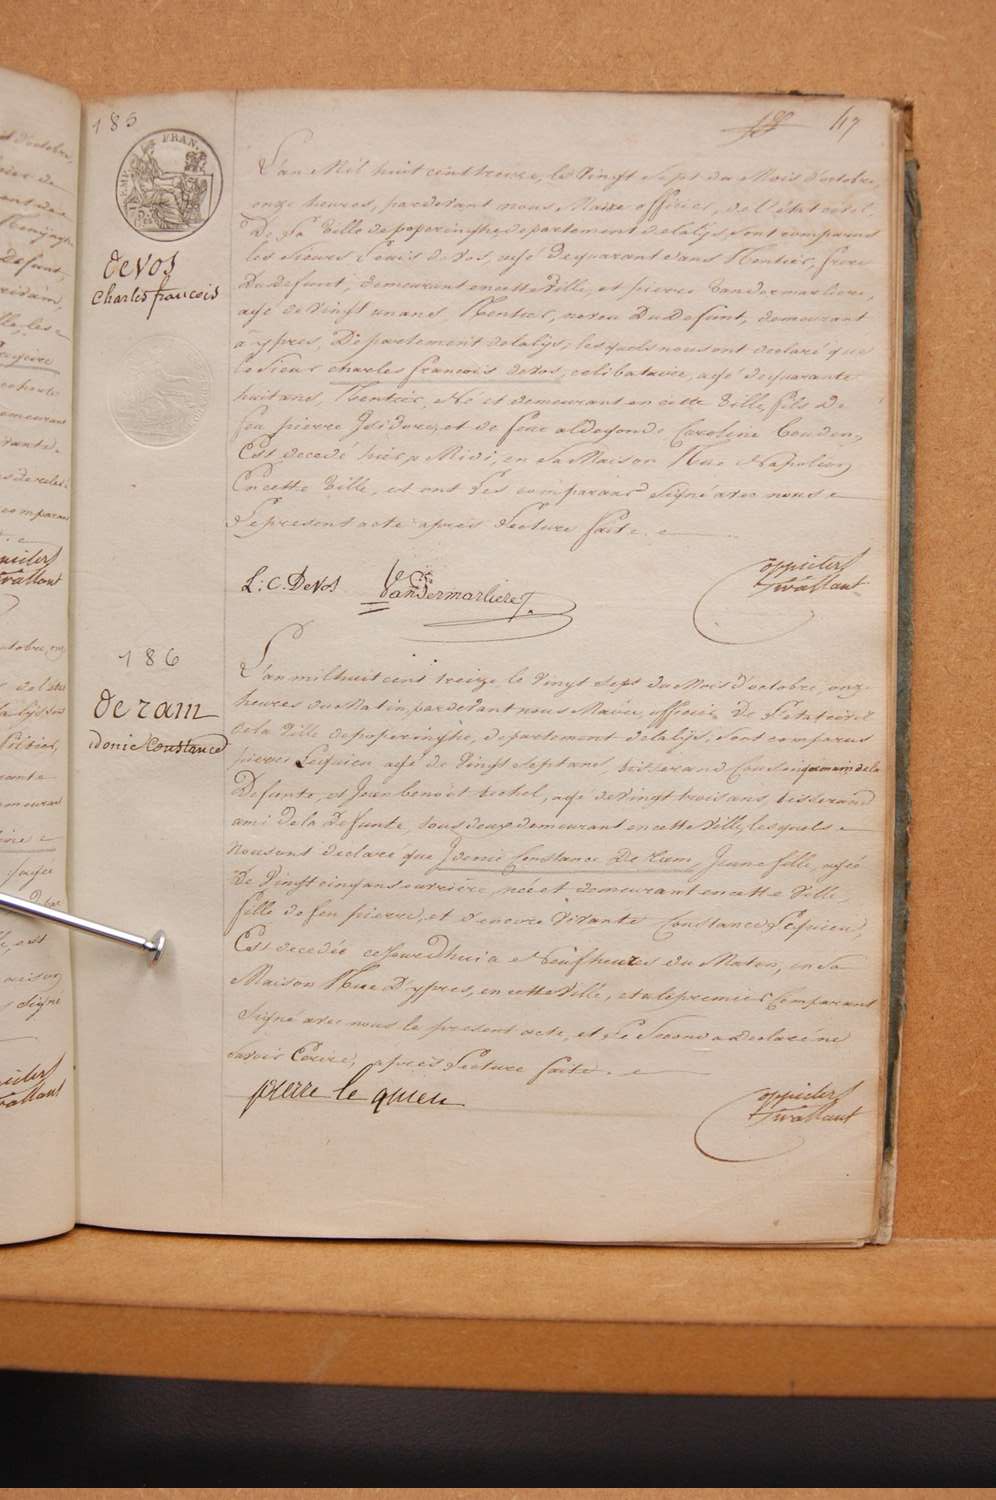 47
185
FRAN.
devos
charles francois
L'an Mil huit cent treize, le Vingt Sept du Mois d'octobre,
onze heures, pardevant nous Maire officier, de l'état civil
De La Ville de poperinghe, departement de la lijs, sont comparus
les Sieurs Louis devos, agé De quarant e ans Rentier, frere
Du defunt, demeurant en cette Ville, et pierre Vandermarliere,
agé de vingt un ans, Rentier, neveu Du Defunt, demeurant
à ypres, Departement de la lijs, lesquels nous ont declaré que
le Sieur charles francois devos, celibataire, agé de quarante
huit ans, Rentier, Né et demeurant en cette Ville, fils De
feu pierre Isidore, et de feue aldegonde Caroline
Est decedé hier a Midi, en Sa Maison Rue Napoléon
En cette Ville, et ont Les comparans Signé avec nous
Le present acte après Lecture faite.
L: C. Devos
Vandermarliere
186
De ram
idonie Constance
L'an mil huit cent treize, le Vingt Sept du Mois d'octobre, onze
heures du Matin, pardevant nous Maire, officier De L'etat civil
de la Ville de poperinghe, departement de la lijs, sont comparus
pierre Lequieu agé de Vingt Sept ans, tisserand Cousin germain de la
Defunte, et Jean benoit agé de Vingt trois ans, tisserand
ami de la Defunte, tous deux demeurant en cette Ville, lesquels
Nous ont declare que Idonie Constance De Ram, Jeune fille, agée
De Vingt cinq ans ouvrière, née et demeurant en cette Ville,
fille de feu pierre, et d'encore Vivante Constance Lequieu,
Est decedée cejourd'hui a Neuf heures du Matin, en Sa
Maison Rue D'ypres, en cette Ville, et a le premier Comparant
Signé avec nous le present acte, et Le Second a declaré ne
Savoir Ecrire, après Lecture faite.
pierre le quieu